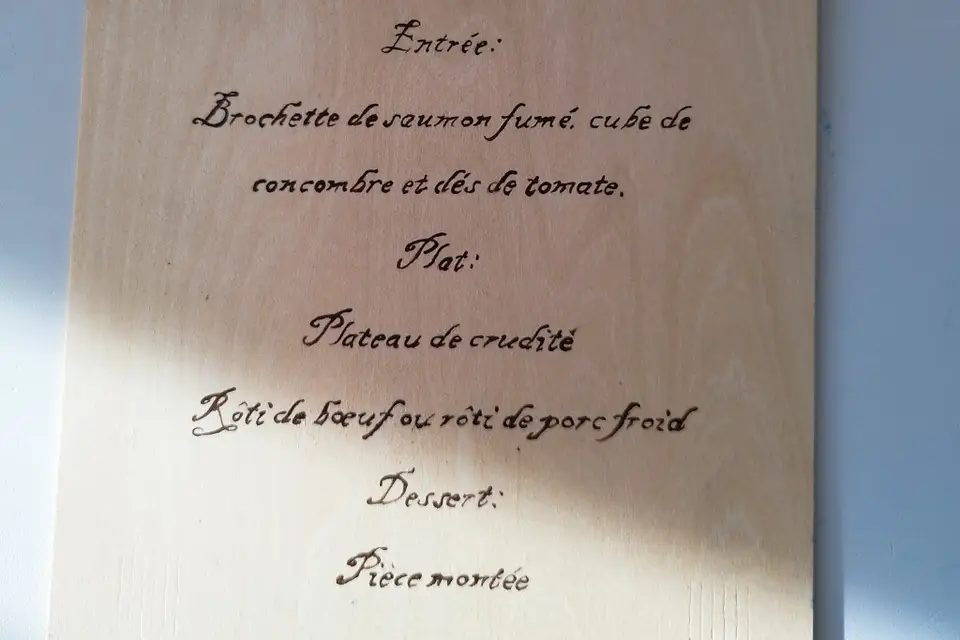 Entrée:
Brochette de saumon fumé. cube de
concombre et dés de tomate.
Plat:
Plateau de crudité
Rôti de bœuf ou rôti de porc froid
Dessert:
Pièce montée